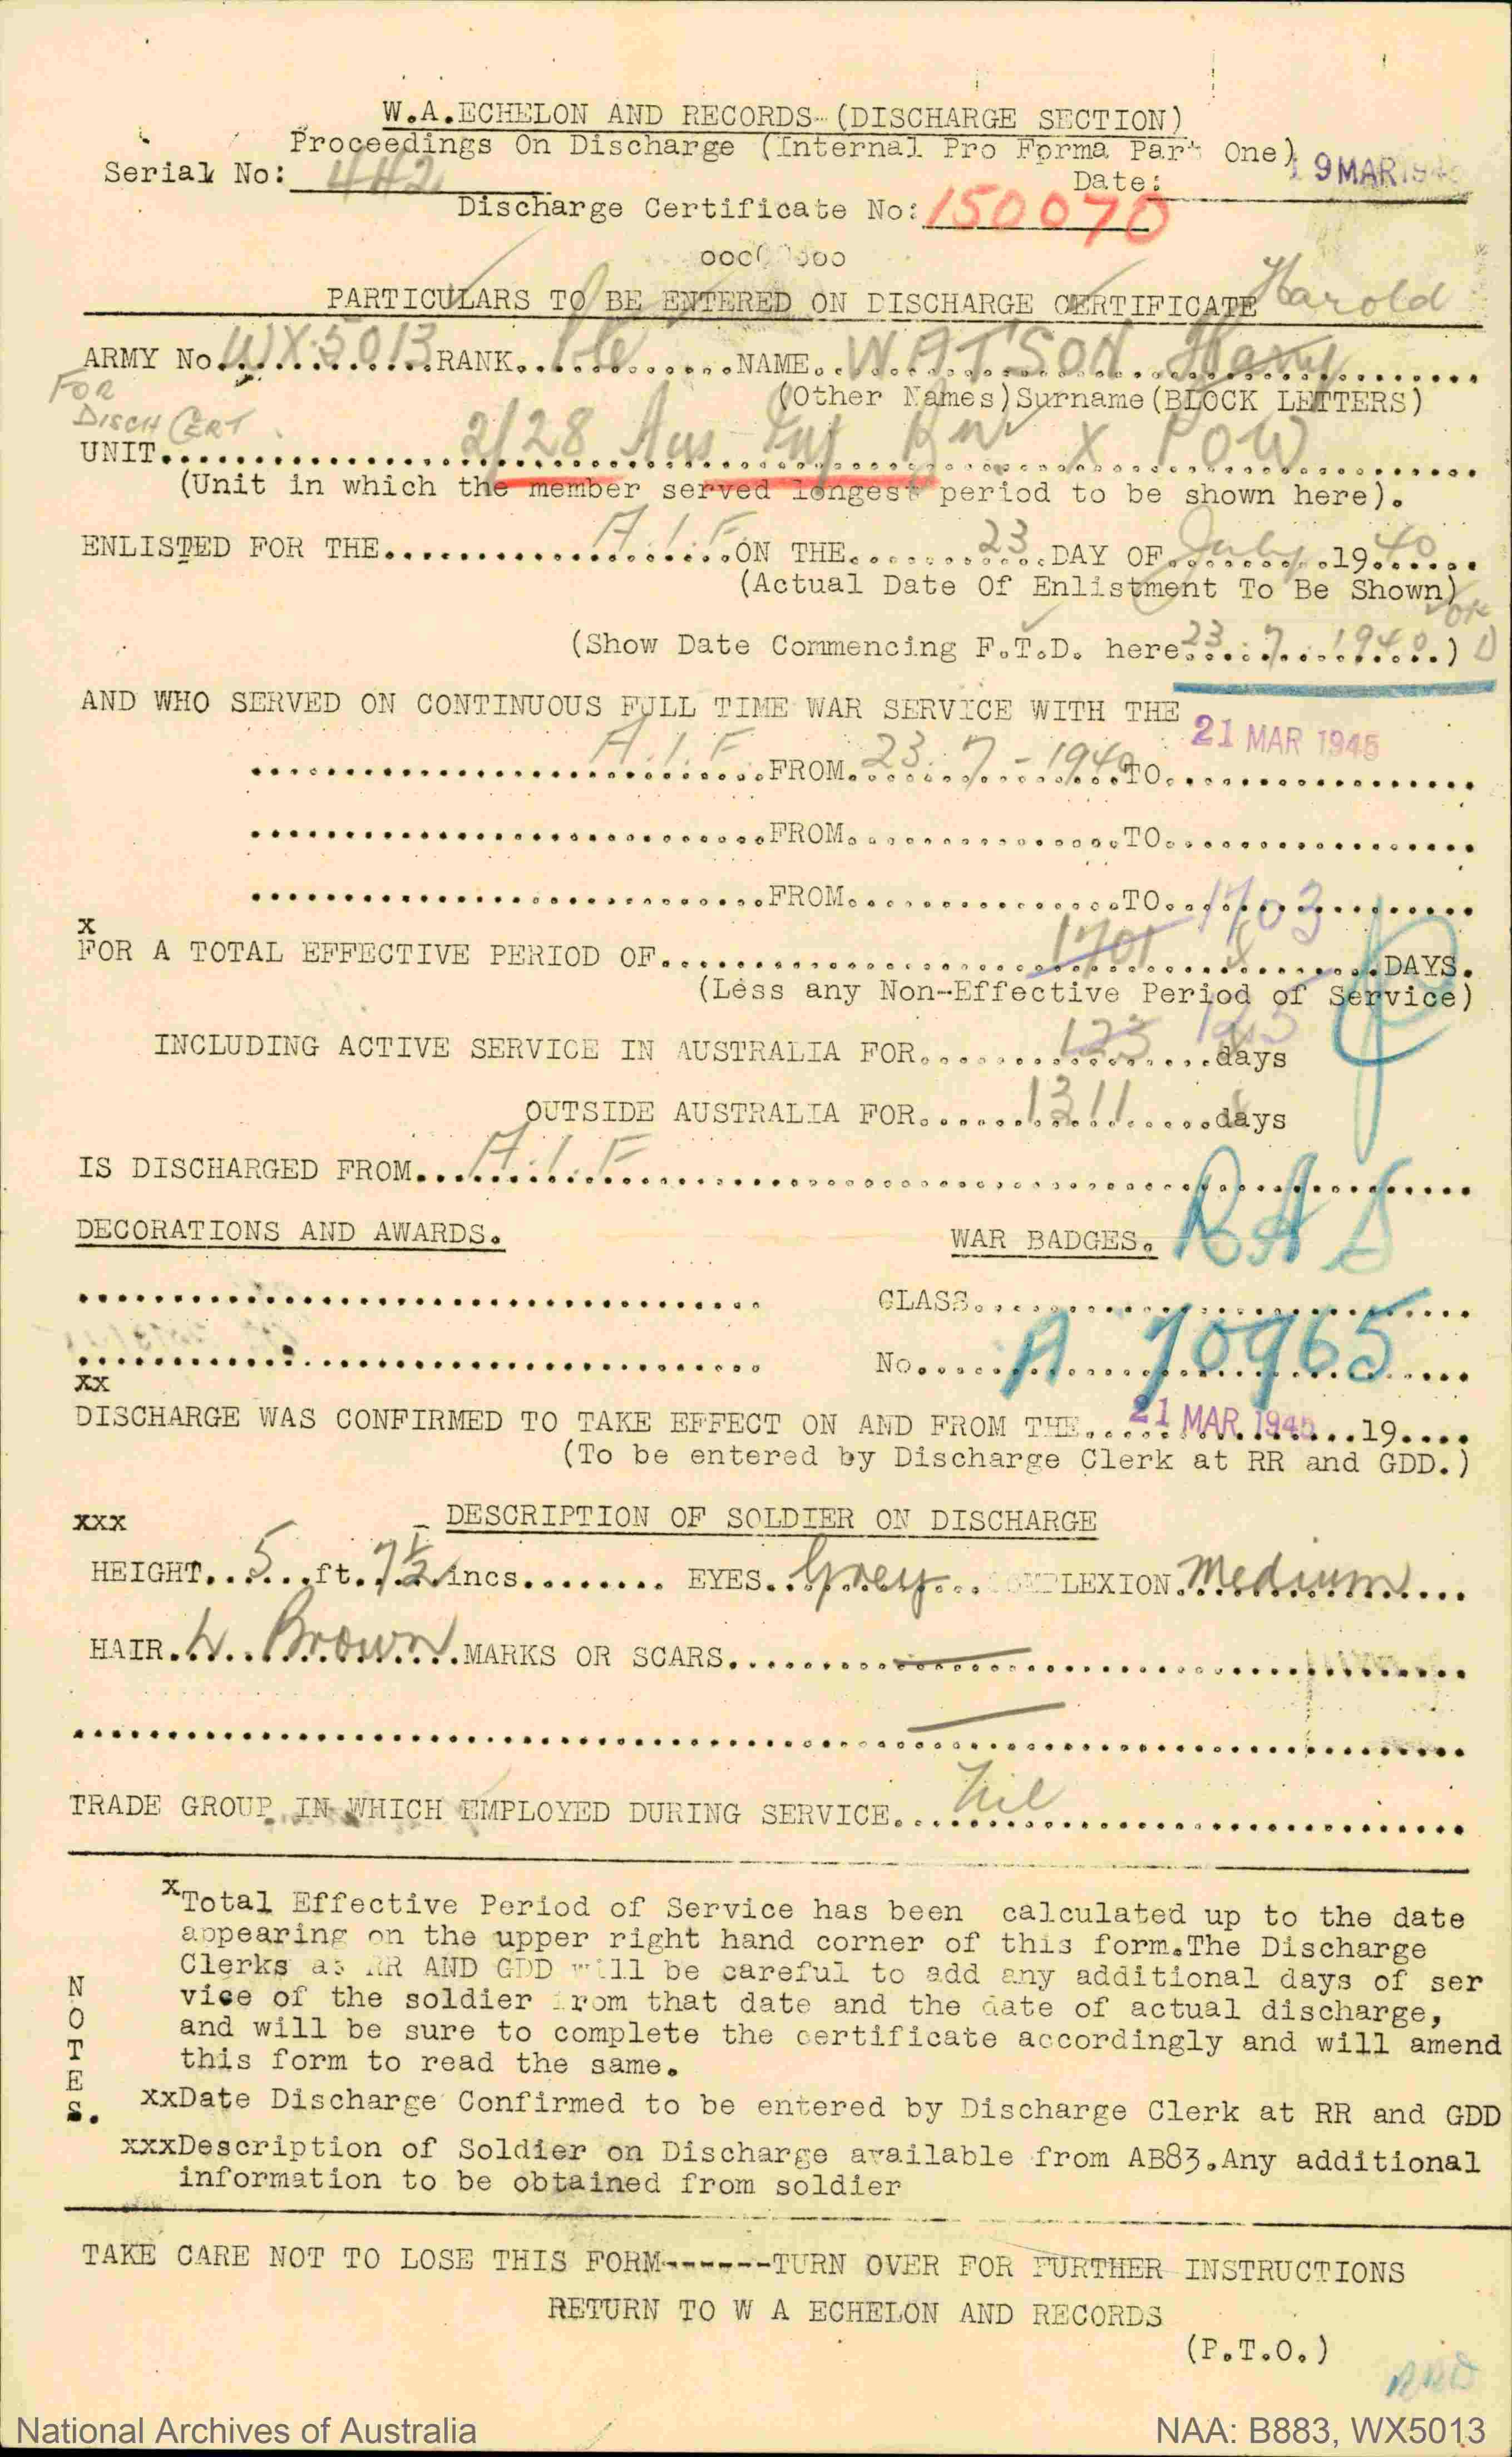 W.A.ECHELON AND RECORDS-(DISCHARGE SECTION)
Proceedings On Discharge (Internal Pro Forma Part One)
Serial No: 442
Date: 19 MAR 1945
Discharge Certificate No: 150070
PARTICULARS TO BE ENTERED ON DISCHARGE CERTIFICATE
Harold
ARMY No. WX5013 RANK. Pte NAME. WATSON Harry
(Other Names)Surname(BLOCK LETTERS)
FOR
DISCH CERT
UNIT. 2/28 Aus Inf Bn X POW
(Unit in which the member served longest period to be shown here).
ENLISTED FOR THE A.I.F ON THE 23 DAY OF July 1940
(Actual Date Of Enlistment To Be Shown)
(Show Date Commencing F.T.D. here 23.7.1940)
AND WHO SERVED ON CONTINUOUS FULL TIME WAR SERVICE WITH THE
A.I.F FROM 23.7-1940 TO 21 MAR 1945
FROM TO
FROM TO
x
FOR A TOTAL EFFECTIVE PERIOD OF 1701 1703 DAYS.
(Less any Non-Effective Period of Service)
INCLUDING ACTIVE SERVICE IN AUSTRALIA FOR 123 days
OUTSIDE AUSTRALIA FOR 1311 days
IS DISCHARGED FROM A.I.F
DECORATIONS AND AWARDS.
WAR BADGES. RAS
CLASS
No. A 70965
xx
DISCHARGE WAS CONFIRMED TO TAKE EFFECT ON AND FROM THE 21 MAR 1945 19
(To be entered by Discharge Clerk at RR and GDD.)
xxx
DESCRIPTION OF SOLDIER ON DISCHARGE
HEIGHT 5 ft. 7½ incs EYES Grey COMPLEXION Medium
HAIR L. Brown MARKS OR SCARS
TRADE GROUP IN WHICH EMPLOYED DURING SERVICE Nil
NOTES.
xTotal Effective Period of Service has been calculated up to the date
appearing on the upper right hand corner of this form.The Discharge
Clerks at RR AND GDD will be careful to add any additional days of ser
vice of the soldier from that date and the date of actual discharge,
and will be sure to complete the certificate accordingly and will amend
this form to read the same.
xxDate Discharge Confirmed to be entered by Discharge Clerk at RR and GDD
xxxDescription of Soldier on Discharge available from AB83.Any additional
information to be obtained from soldier
TAKE CARE NOT TO LOSE THIS FORM------TURN OVER FOR FURTHER INSTRUCTIONS
RETURN TO W A ECHELON AND RECORDS
(P.T.O.)
National Archives of Australia
NAA: B883, WX5013